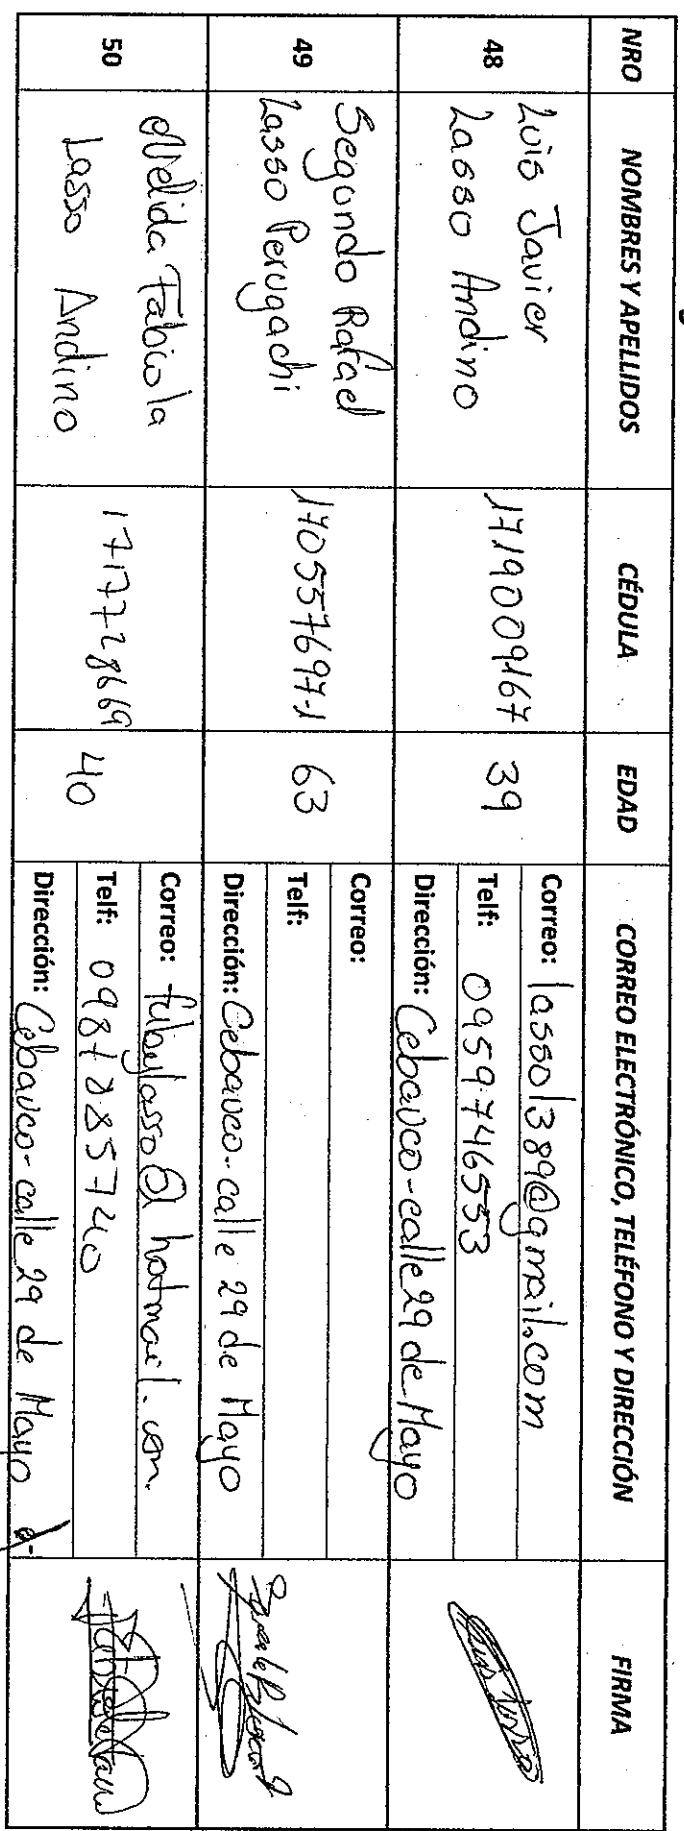 NRO NOMBRES Y APELLIDOS CÉDULA EDAD CORREO ELECTRÓNICO, TELÉFONO Y DIRECCIÓN FIRMA
48
Luis Javier
Lasso Andino
1719009167
39
Correo: lasso1389@gmail.com
Telf: 0959746553
Dirección: Cebauco-calle 29 de Mayo
49
Segundo Rafael
Lasso Perugachi
170557697-1
63
Correo:
Telf:
Dirección: Cebauco-calle 29 de Mayo
50
Fabiola
Lasso Andino
1717728669
40
Correo: fabylasso@hotmail.com.
Telf:
Dirección: Cebauco-calle 29 de Mayo